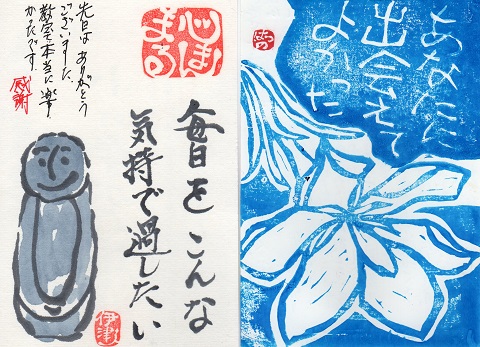 先日は ありがとう
ございました。
教室で本当に楽し
かったです。
感謝
毎日を こんな
気持で過したい
伊津
あなたに
出会えて
よかった